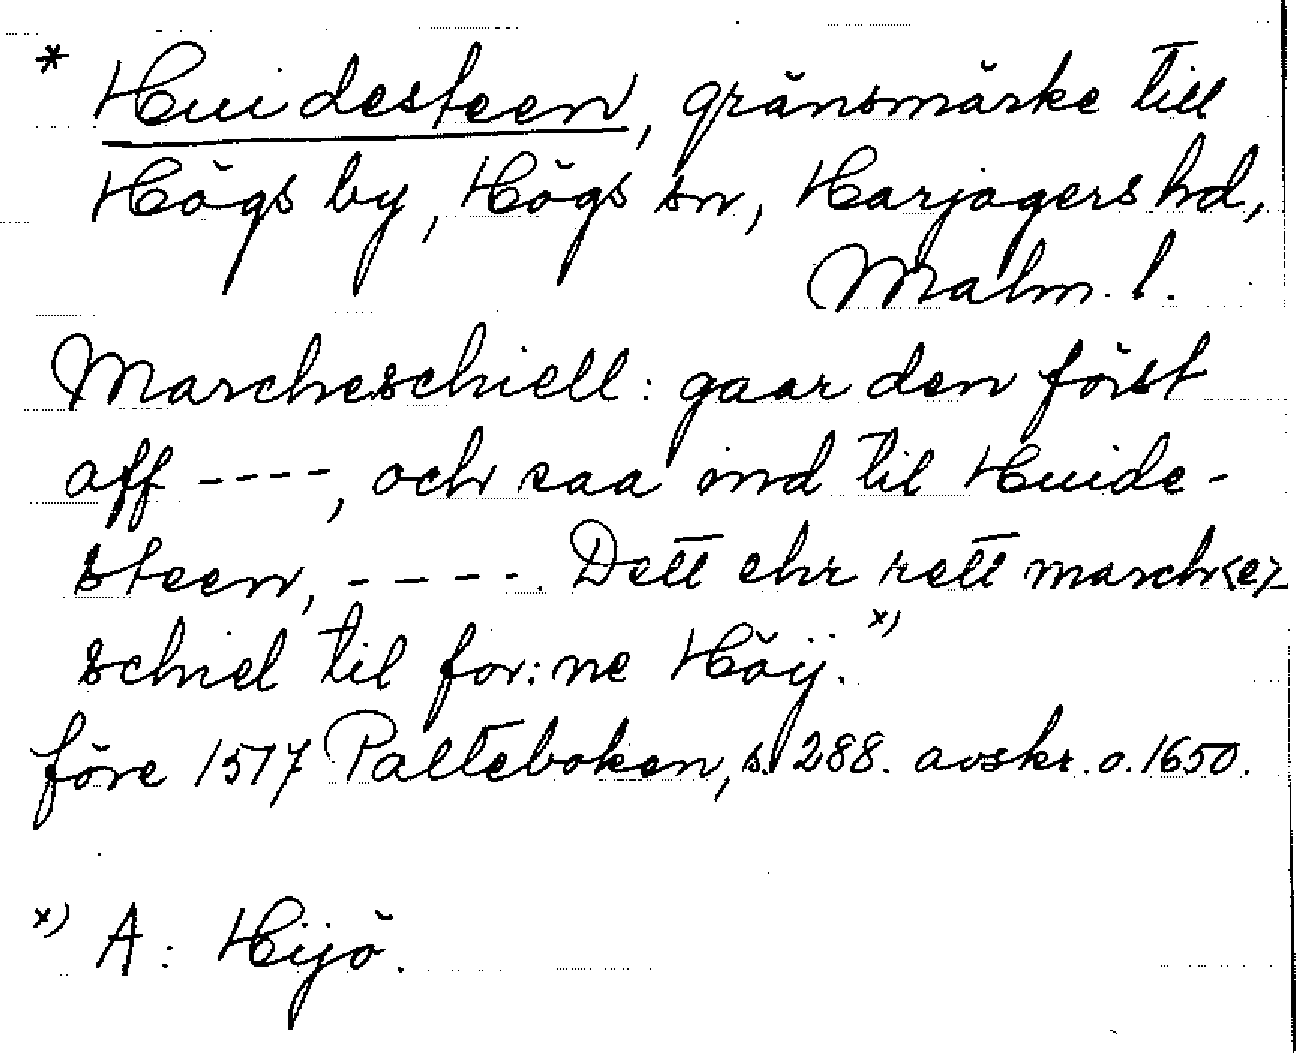 * Huidesteen, gränsmärke till
Högs by, Högs sn, Harjagers hd,
Malm. l.
Marcheschiell: gaar den först
aff ----, och saa ind til Huide-
steen, ----. Dett ehr rett march<e>
schiel til for:ne Höÿ. x)
före 1517 Palteboken, s. 288. avskr. o. 1650.
x) A: Hijö.